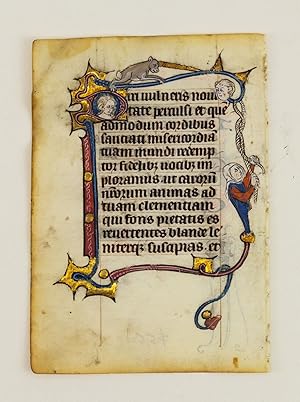 In vulneris noui
tate perculsi et que
admodum cordibus
sauciati misericordia
tuam domine redemp
tor flebilibus uocibus im
ploramus ut carorum
nostrorum animas ad
tuam clementiam
qui fons pietatis es
reuertentes blande le
niterque suscipias et